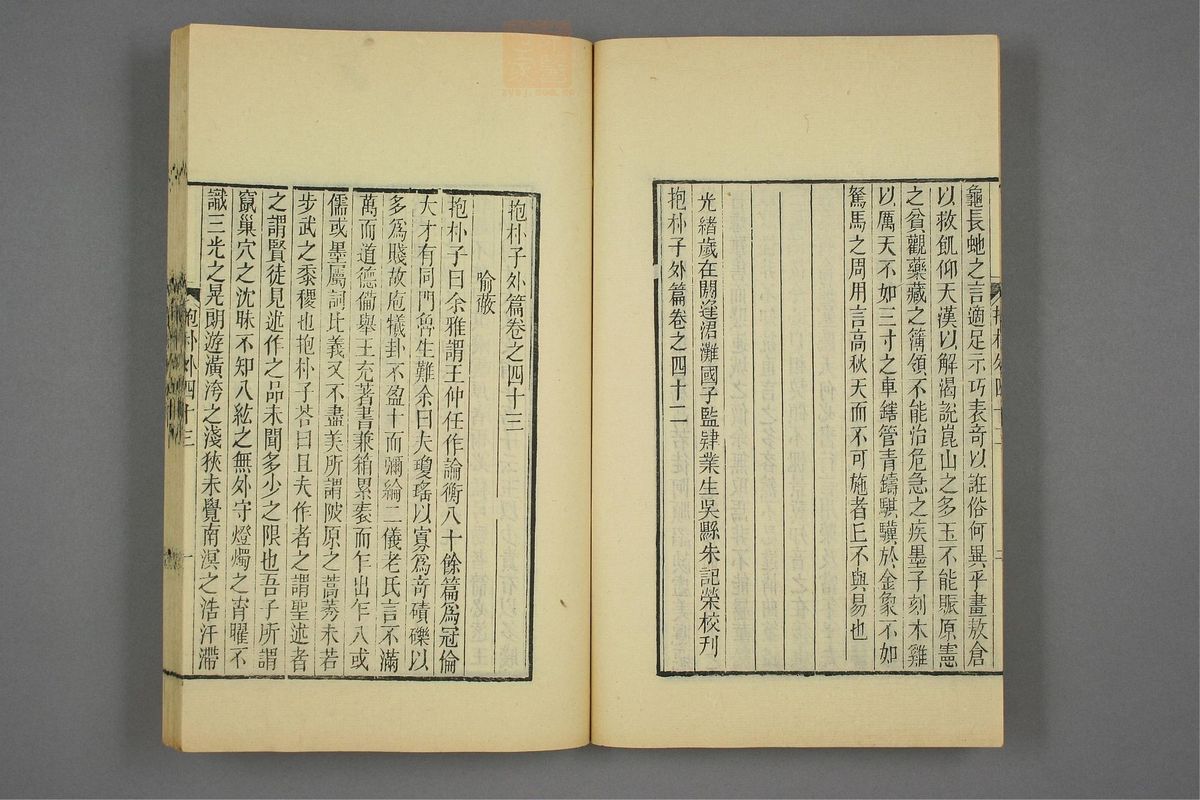 龜長虵之言適足示巧表奇以誑俗何異乎畫敖倉
以救飢仰天漢以解渴説崑山之多玉不能賑原憲
之貧觀藥藏之簿領不能治危急之疾墨子刻木雞
以厲天不如三寸之車鎋管青鑄騏驥於金象不如
駑馬之周用言高秋天而不可施者丘不與易也
光緒歲在閼逢涒灘國子監肄業生吳縣朱記榮校刊
抱朴子外篇卷之四十二
抱朴子外篇卷之四十三
喻蔽
抱朴子曰余雅謂王仲任作論衡八十餘篇爲冠倫
大才有同門魯生難余曰夫瓊瑤以寡爲奇磧礫以
多爲賤故庖犧卦不盈十而彌綸二儀老氏言不滿
萬而道德備舉王充著書兼箱累袠而乍出乍入或
儒或墨屬詞比義又不盡美所謂陂原之蒿莠未若
步武之黍稷也抱朴子荅曰且夫作者之謂聖述者
之謂賢徒見述作之品未聞多少之限也吾子所謂
竄巢穴之沈昧不知八紘之無外守燈燭之宵曜不
識三光之晃朗遊潢洿之淺狹未覺南溟之浩汗滯
抱朴外四十三
一